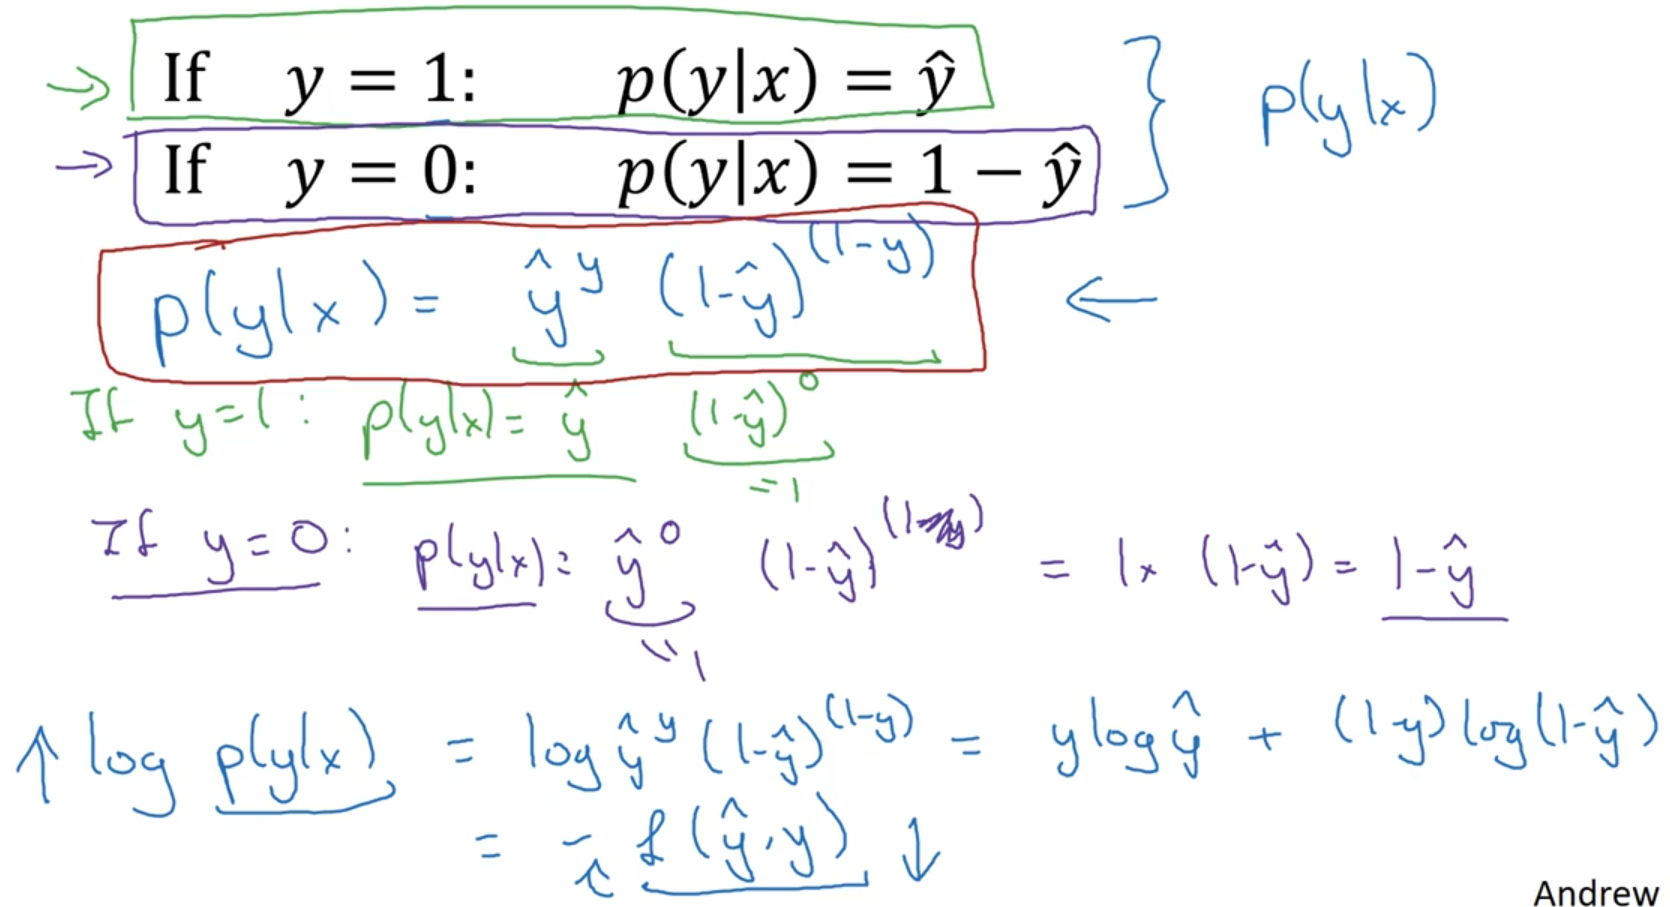 → If y = 1: p(y|x) = ŷ
→ If y = 0: p(y|x) = 1 − ŷ } p(y|x)
p(y|x) = ŷ^y (1-ŷ)^(1-y) ←
If y=1: p(y|x) = ŷ (1-ŷ)^0
=1
If y=0: p(y|x) = ŷ^0 (1-ŷ)^(1-y) = 1x (1-ŷ) = 1-ŷ
=1
↑ log p(y|x) = log ŷ^y (1-ŷ)^(1-y) = y log ŷ + (1-y) log(1-ŷ)
= - ℒ(ŷ, y) ↓
↑
Andrew